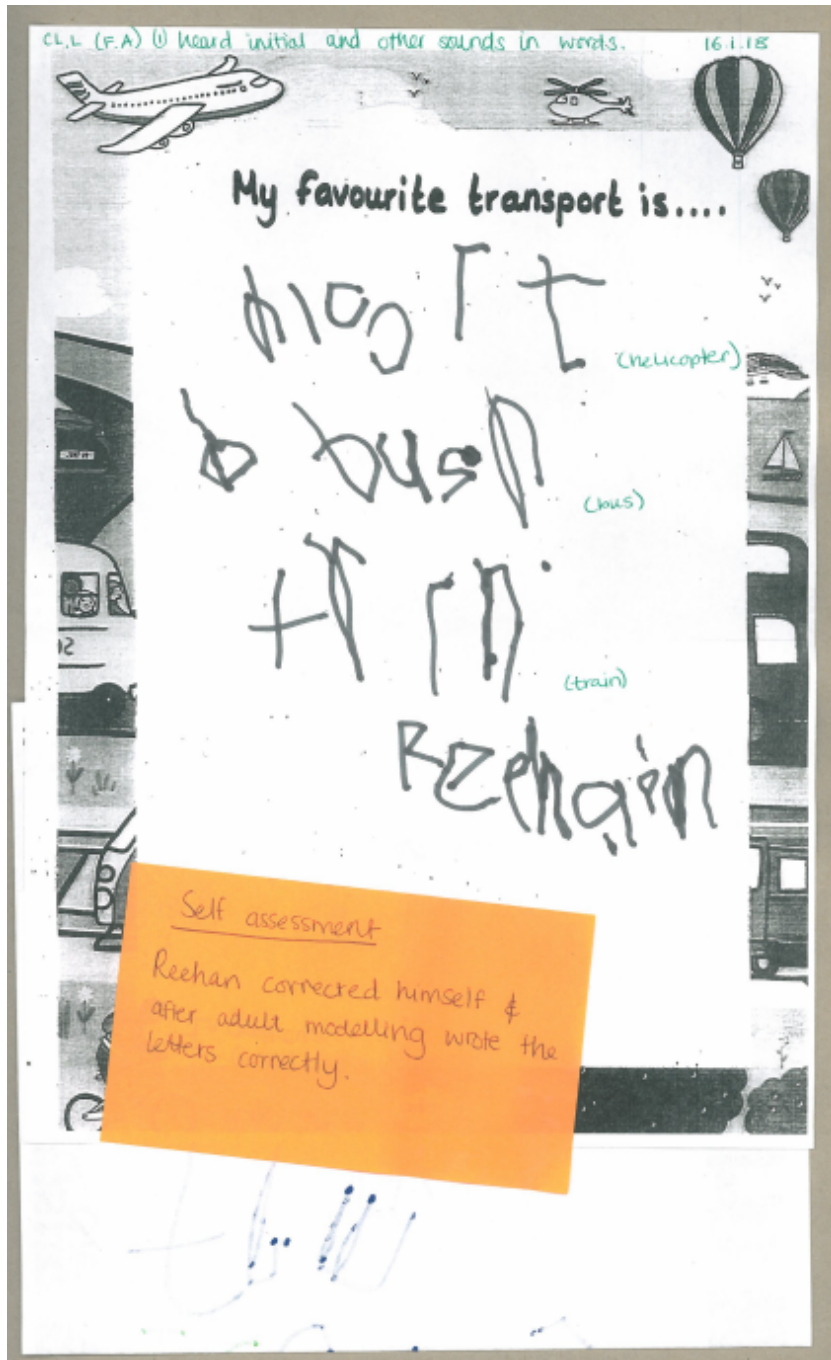 CL,L (F.A) ① heard initial and other sounds in words. 16.1.18
My favourite transport is....
(helicopter)
b bus
(bus)
(train)
Reehain
Self assessment
Reehan corrected himself &
after adult modelling wrote the
letters correctly.